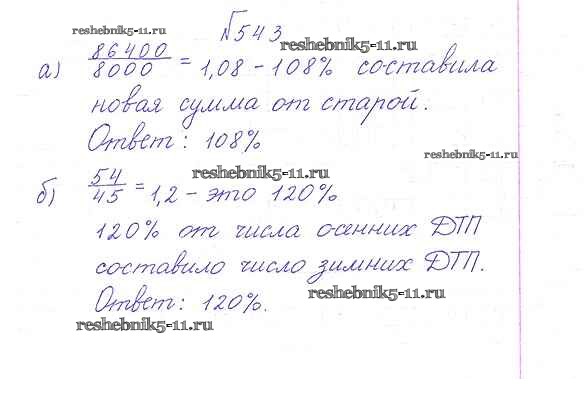 №543
reshebnik5-11.ru
reshebnik5-11.ru
а) 86400/8000 = 1,08 – 108% составила
новая сумма от старой.
Ответ: 108%
reshebnik5-11.ru
reshebnik5-11.ru
б) 54/45 = 1,2 – это 120%
120% от числа осенних ДТП
составило число зимних ДТП.
Ответ: 120%.
reshebnik5-11.ru
reshebnik5-11.ru